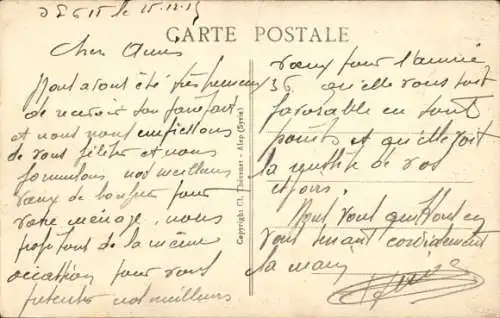 le 15.12.35
CARTE POSTALE
Cher Amis
Nous avons été très heureux
de recevoir ton faire part
et nous nous empressons
de vous féliciter et nous
formulons nos meilleurs
vœux de bonheur pour
votre ménage, nous
profitons de la même
occasion pour vous
présenter nos meilleurs
Copyright Cl. Thévenet - Alep (Syrie)
vœux pour l'année
36 qu'elle vous soit
favorable en tout
points et qu'elle soit
la de vos
espoirs.
Nous vous quittons en
vous serrant cordialement
la main